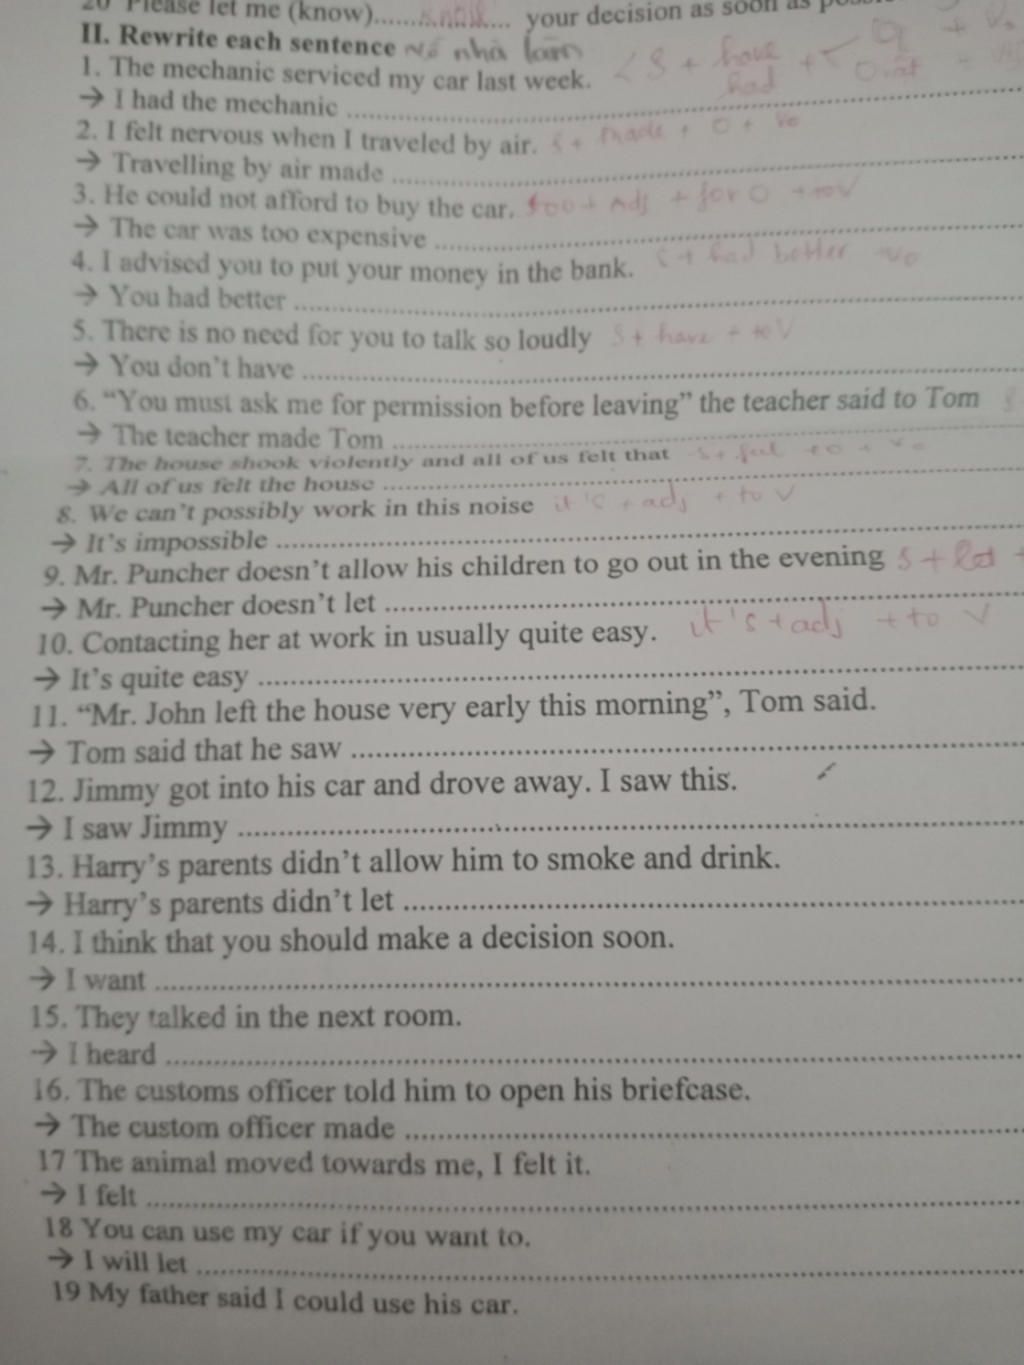 20 Please let me (know)............ your decision as soon as
II. Rewrite each sentence Về nhà làm
1. The mechanic serviced my car last week. S + have
had
→ I had the mechanic ..........
2. I felt nervous when I traveled by air. S + made + O + Vo
→ Travelling by air made ..........
3. He could not afford to buy the car. too + Adj + for O + to V
→ The car was too expensive ..........
4. I advised you to put your money in the bank. S + had better + Vo
→ You had better ..........
5. There is no need for you to talk so loudly S + have + to V
→ You don't have ..........
6. “You must ask me for permission before leaving” the teacher said to Tom
→ The teacher made Tom ..........
7. The house shook violently and all of us felt that S + + O + Vo
→ All of us felt the house ..........
8. We can't possibly work in this noise it's + adj + to V
→ It's impossible ..........
9. Mr. Puncher doesn't allow his children to go out in the evening S + let +
→ Mr. Puncher doesn't let ..........
10. Contacting her at work in usually quite easy. it's + adj + to V
→ It's quite easy ..........
11. “Mr. John left the house very early this morning”, Tom said.
→ Tom said that he saw ..........
12. Jimmy got into his car and drove away. I saw this.
→ I saw Jimmy ..........
13. Harry's parents didn't allow him to smoke and drink.
→ Harry's parents didn't let ..........
14. I think that you should make a decision soon.
→ I want ..........
15. They talked in the next room.
→ I heard ..........
16. The customs officer told him to open his briefcase.
→ The custom officer made ..........
17 The animal moved towards me, I felt it.
→ I felt ..........
18 You can use my car if you want to.
→ I will let ..........
19 My father said I could use his car.